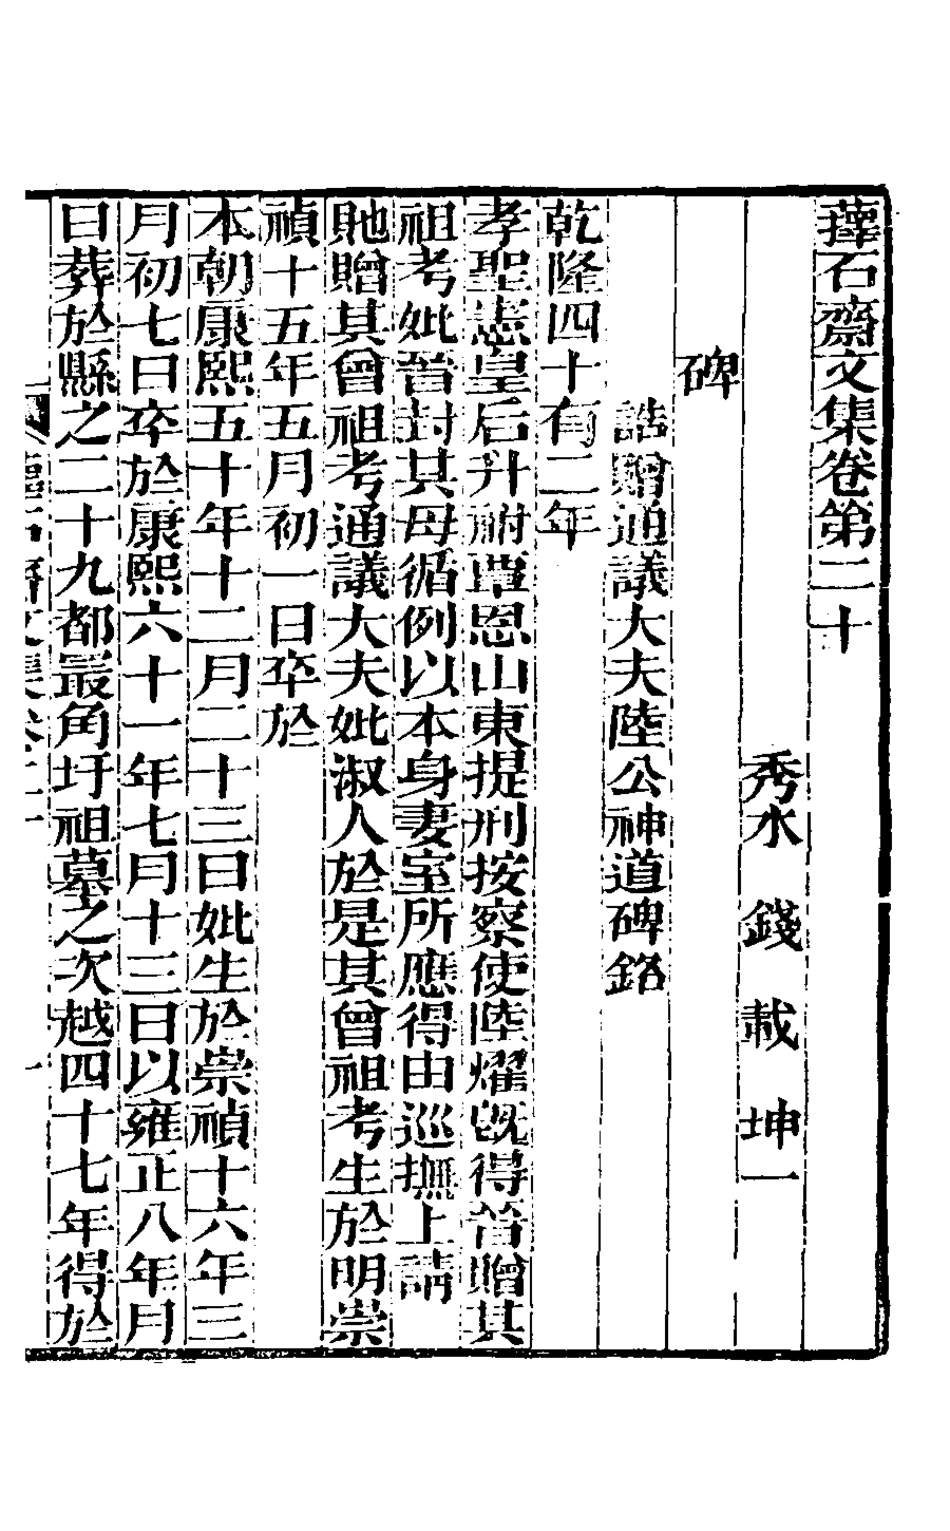 蘀石齋文集卷第二十
秀水 錢 載 坤一
碑
誥贈通議大夫陸公神道碑銘
乾隆四十有二年
孝聖憲皇后升祔覃恩山東提刑按察使陸燿旣得晉贈其
祖考妣晉封其母循例以本身妻室所應得由巡撫上請
貤贈其曾祖考通議大夫妣淑人於是其曾祖考生於明崇
禎十五年五月初一日卒於
本朝康熙五十年十二月二十三日妣生於崇禎十六年三
月初七日卒於康熙六十一年七月十三日以雍正八年月
日葬於縣之二十九都最角圩祖墓之次越四十七年得於